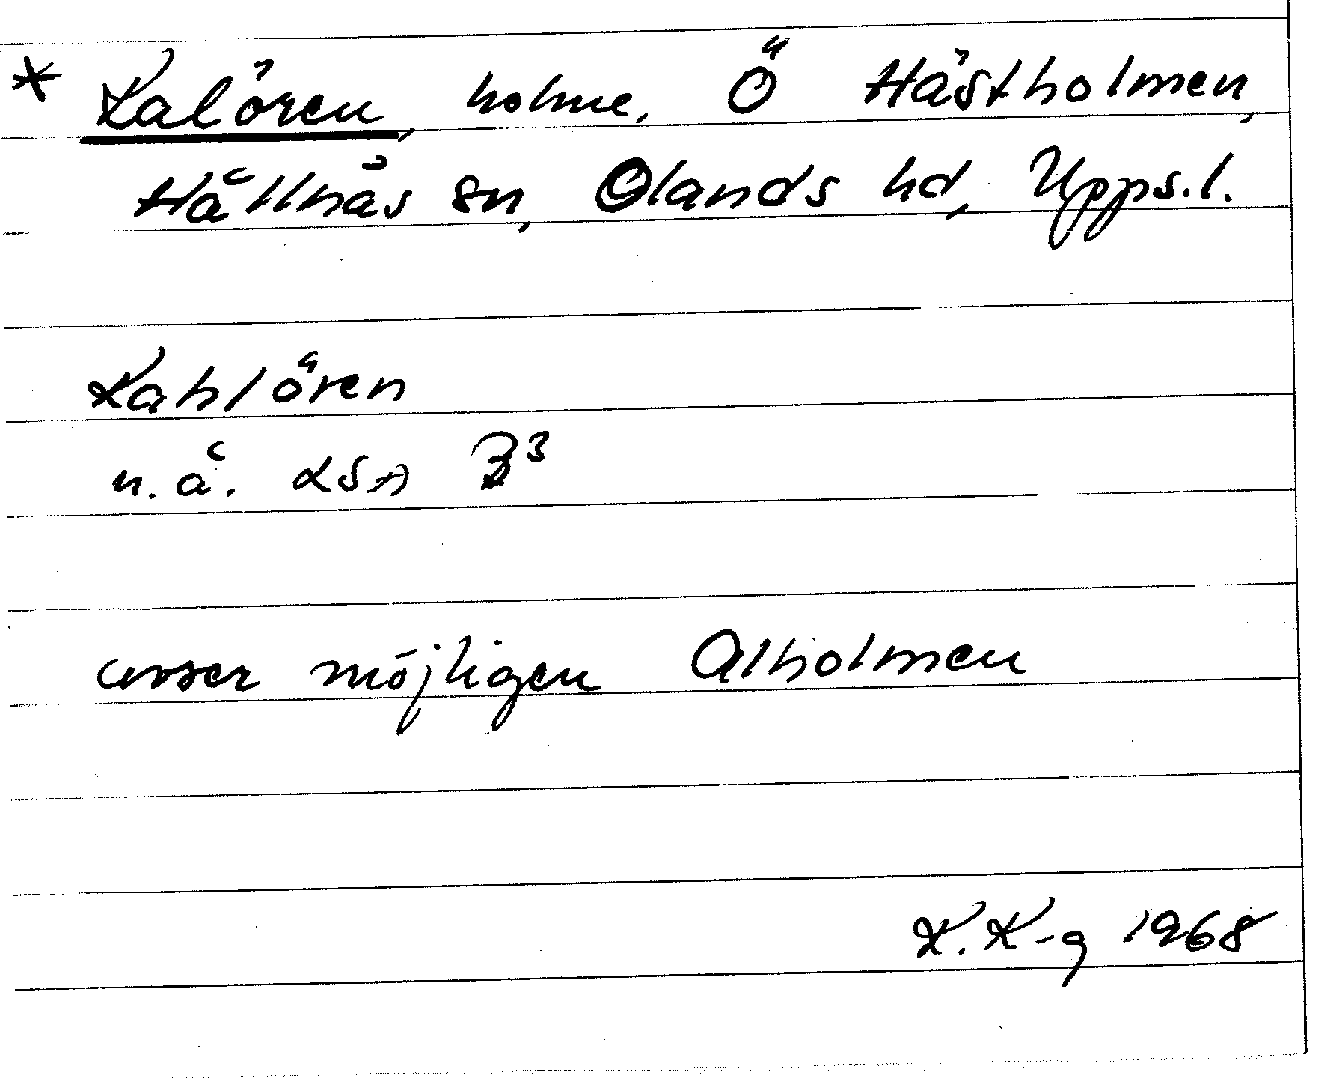 * Kalören, holme, Ö Hästholmen,
Hållnäs sn, Olands hd, Upps.l.
Kahlören
u.å. LSA B³
avser möjligen Alholmen
K. K-g 1968